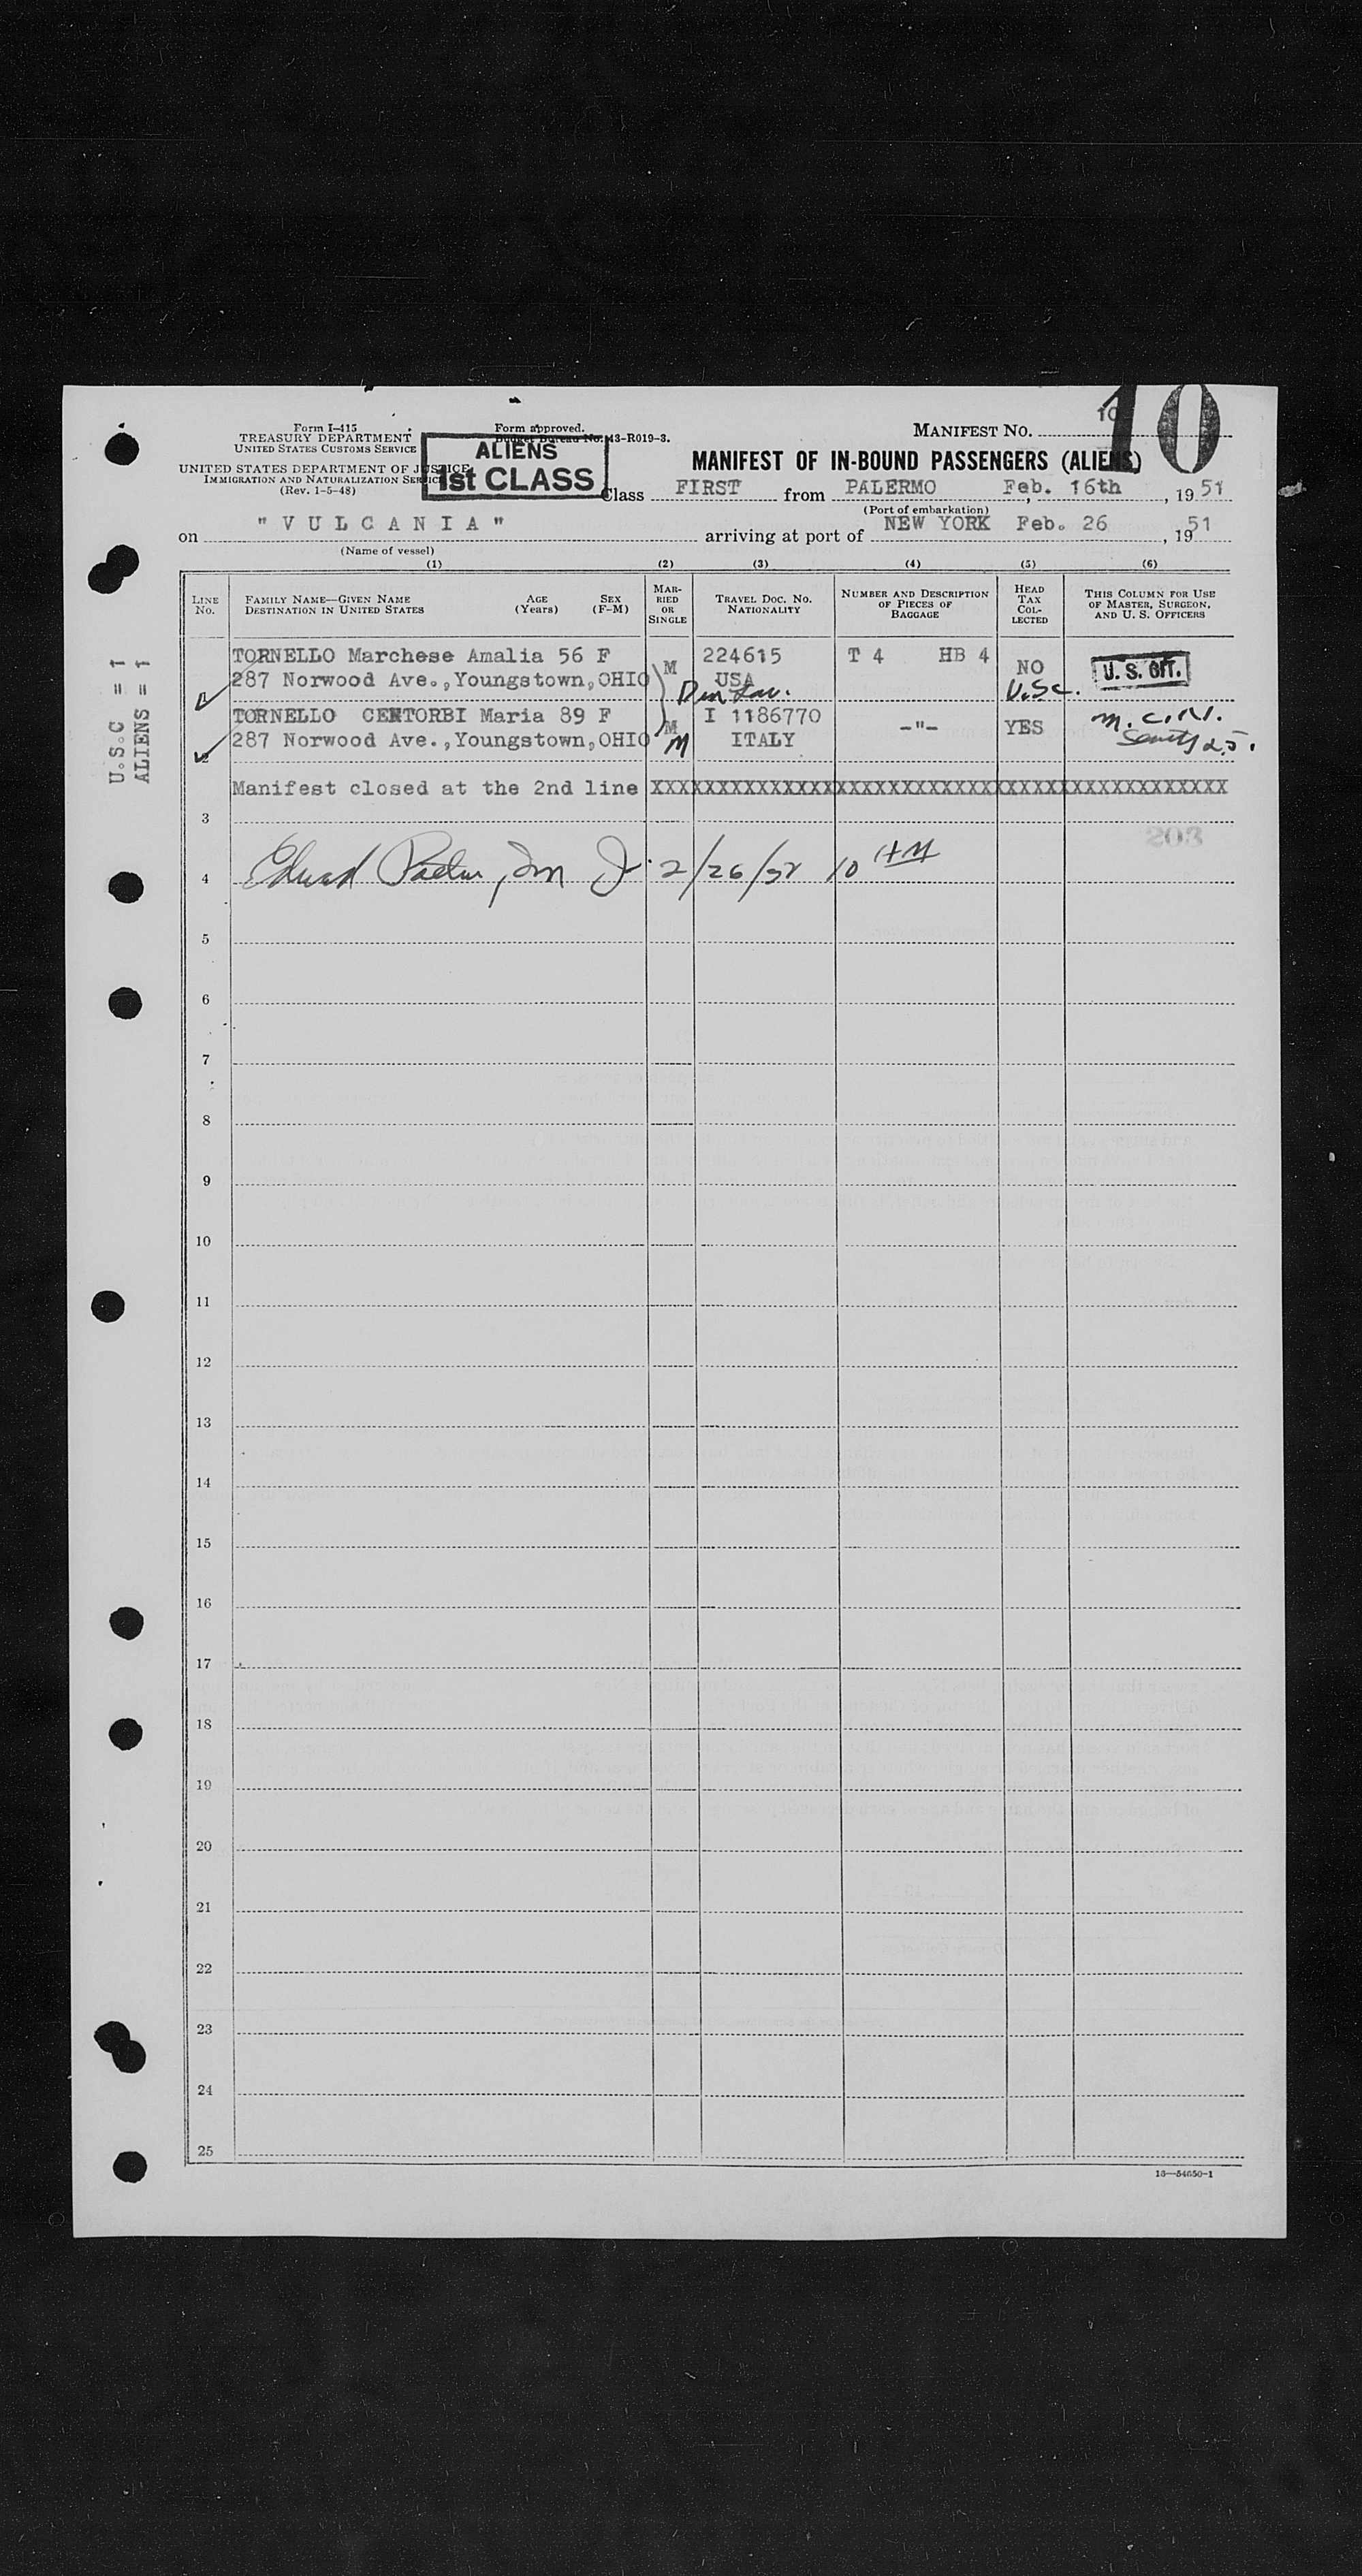 10
Form I-415
TREASURY DEPARTMENT
UNITED STATES CUSTOMS SERVICE
UNITED STATES DEPARTMENT OF JUSTICE
IMMIGRATION AND NATURALIZATION SERVICE
(Rev. 1-5-48)
Form approved.
Budget Bureau No. 43-R019-3.
ALIENS
1st CLASS
MANIFEST NO. 10
MANIFEST OF IN-BOUND PASSENGERS (ALIENS)
Class FIRST from PALERMO Feb. 16th, 1951
(Port of embarkation)
on "VULCANIA" arriving at port of NEW YORK Feb. 26, 1951
(Name of vessel)
(1) (2) (3) (4) (5) (6)
LINE NO.
FAMILY NAME—GIVEN NAME
DESTINATION IN UNITED STATES
AGE (Years)
SEX (F-M)
MARRIED OR SINGLE
TRAVEL DOC. NO. NATIONALITY
NUMBER AND DESCRIPTION OF PIECES OF BAGGAGE
HEAD TAX COLLECTED
THIS COLUMN FOR USE OF MASTER, SURGEON, AND U. S. OFFICERS
U.S.C = 1
ALIENS = 1
TORNELLO Marchese Amalia 56 F M 224615 T 4 HB 4 NO U. S. CIT.
287 Norwood Ave.,Youngstown,OHIO USA U.S.C.
TORNELLO CENTORBI Maria 89 F M I 1186770 -"- YES
287 Norwood Ave.,Youngstown,OHIO M ITALY
2
Manifest closed at the 2nd line XXXXXXXXXXXXXXXXXXXXXXXXXXXXXXXXXXXXXXXXXXXXXX
203
3
4 2/26/52 10
5
6
7
8
9
10
11
12
13
14
15
16
17
18
19
20
21
22
23
24
25
16—54650-1